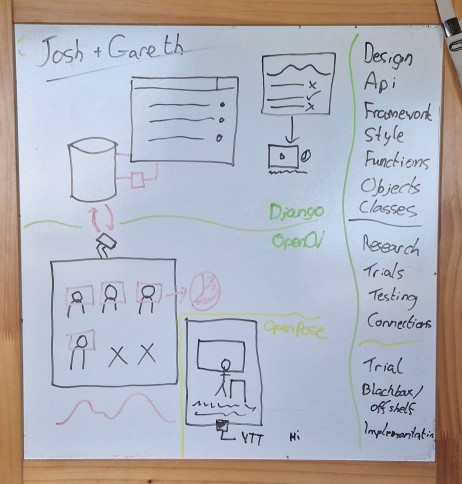 Josh + Gareth
Django
OpenCV
OpenPose
VTT Hi
Design
Api
Framework
Style
Functions
Objects
Classes
Research
Trials
Testing
Connections
Trial
Blackbox/
off shelf
Implementation